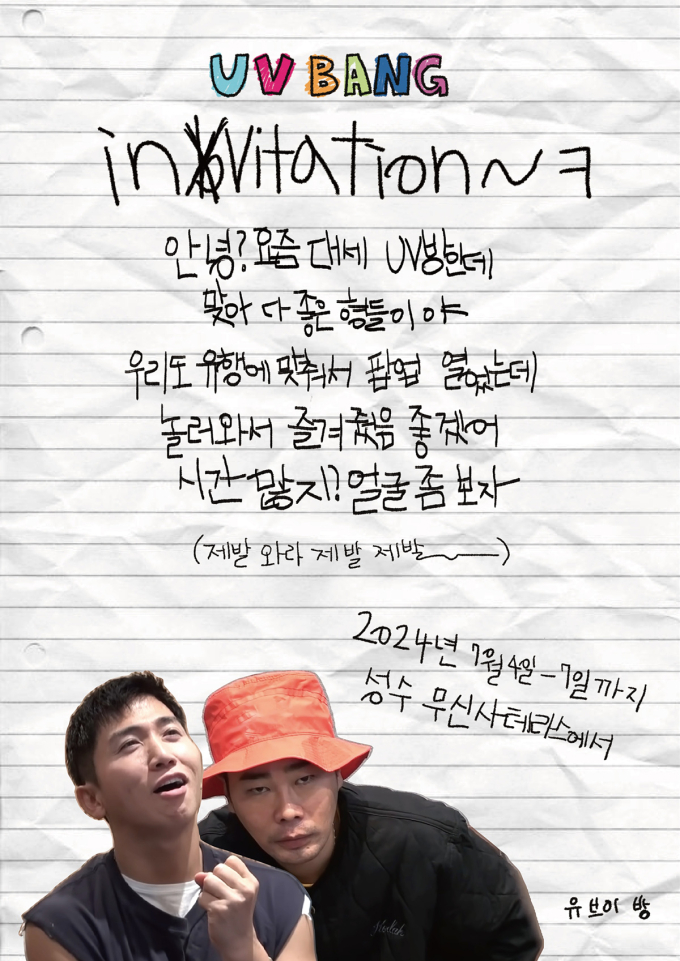 UV BANG
invitation~ ㅋ
안녕? 요즘 대세 UV방인데
맞아 다 좋은 형들이야
우리도 유행에 맞춰서 팝업 열었는데
놀러와서 즐겨줬음 좋겠어
시간 많지? 얼굴 좀 보자
(제발 와라 제발 제발~)
2024년 7월 4일 - 7일까지
성수 무신사테라스에서
유브이 방